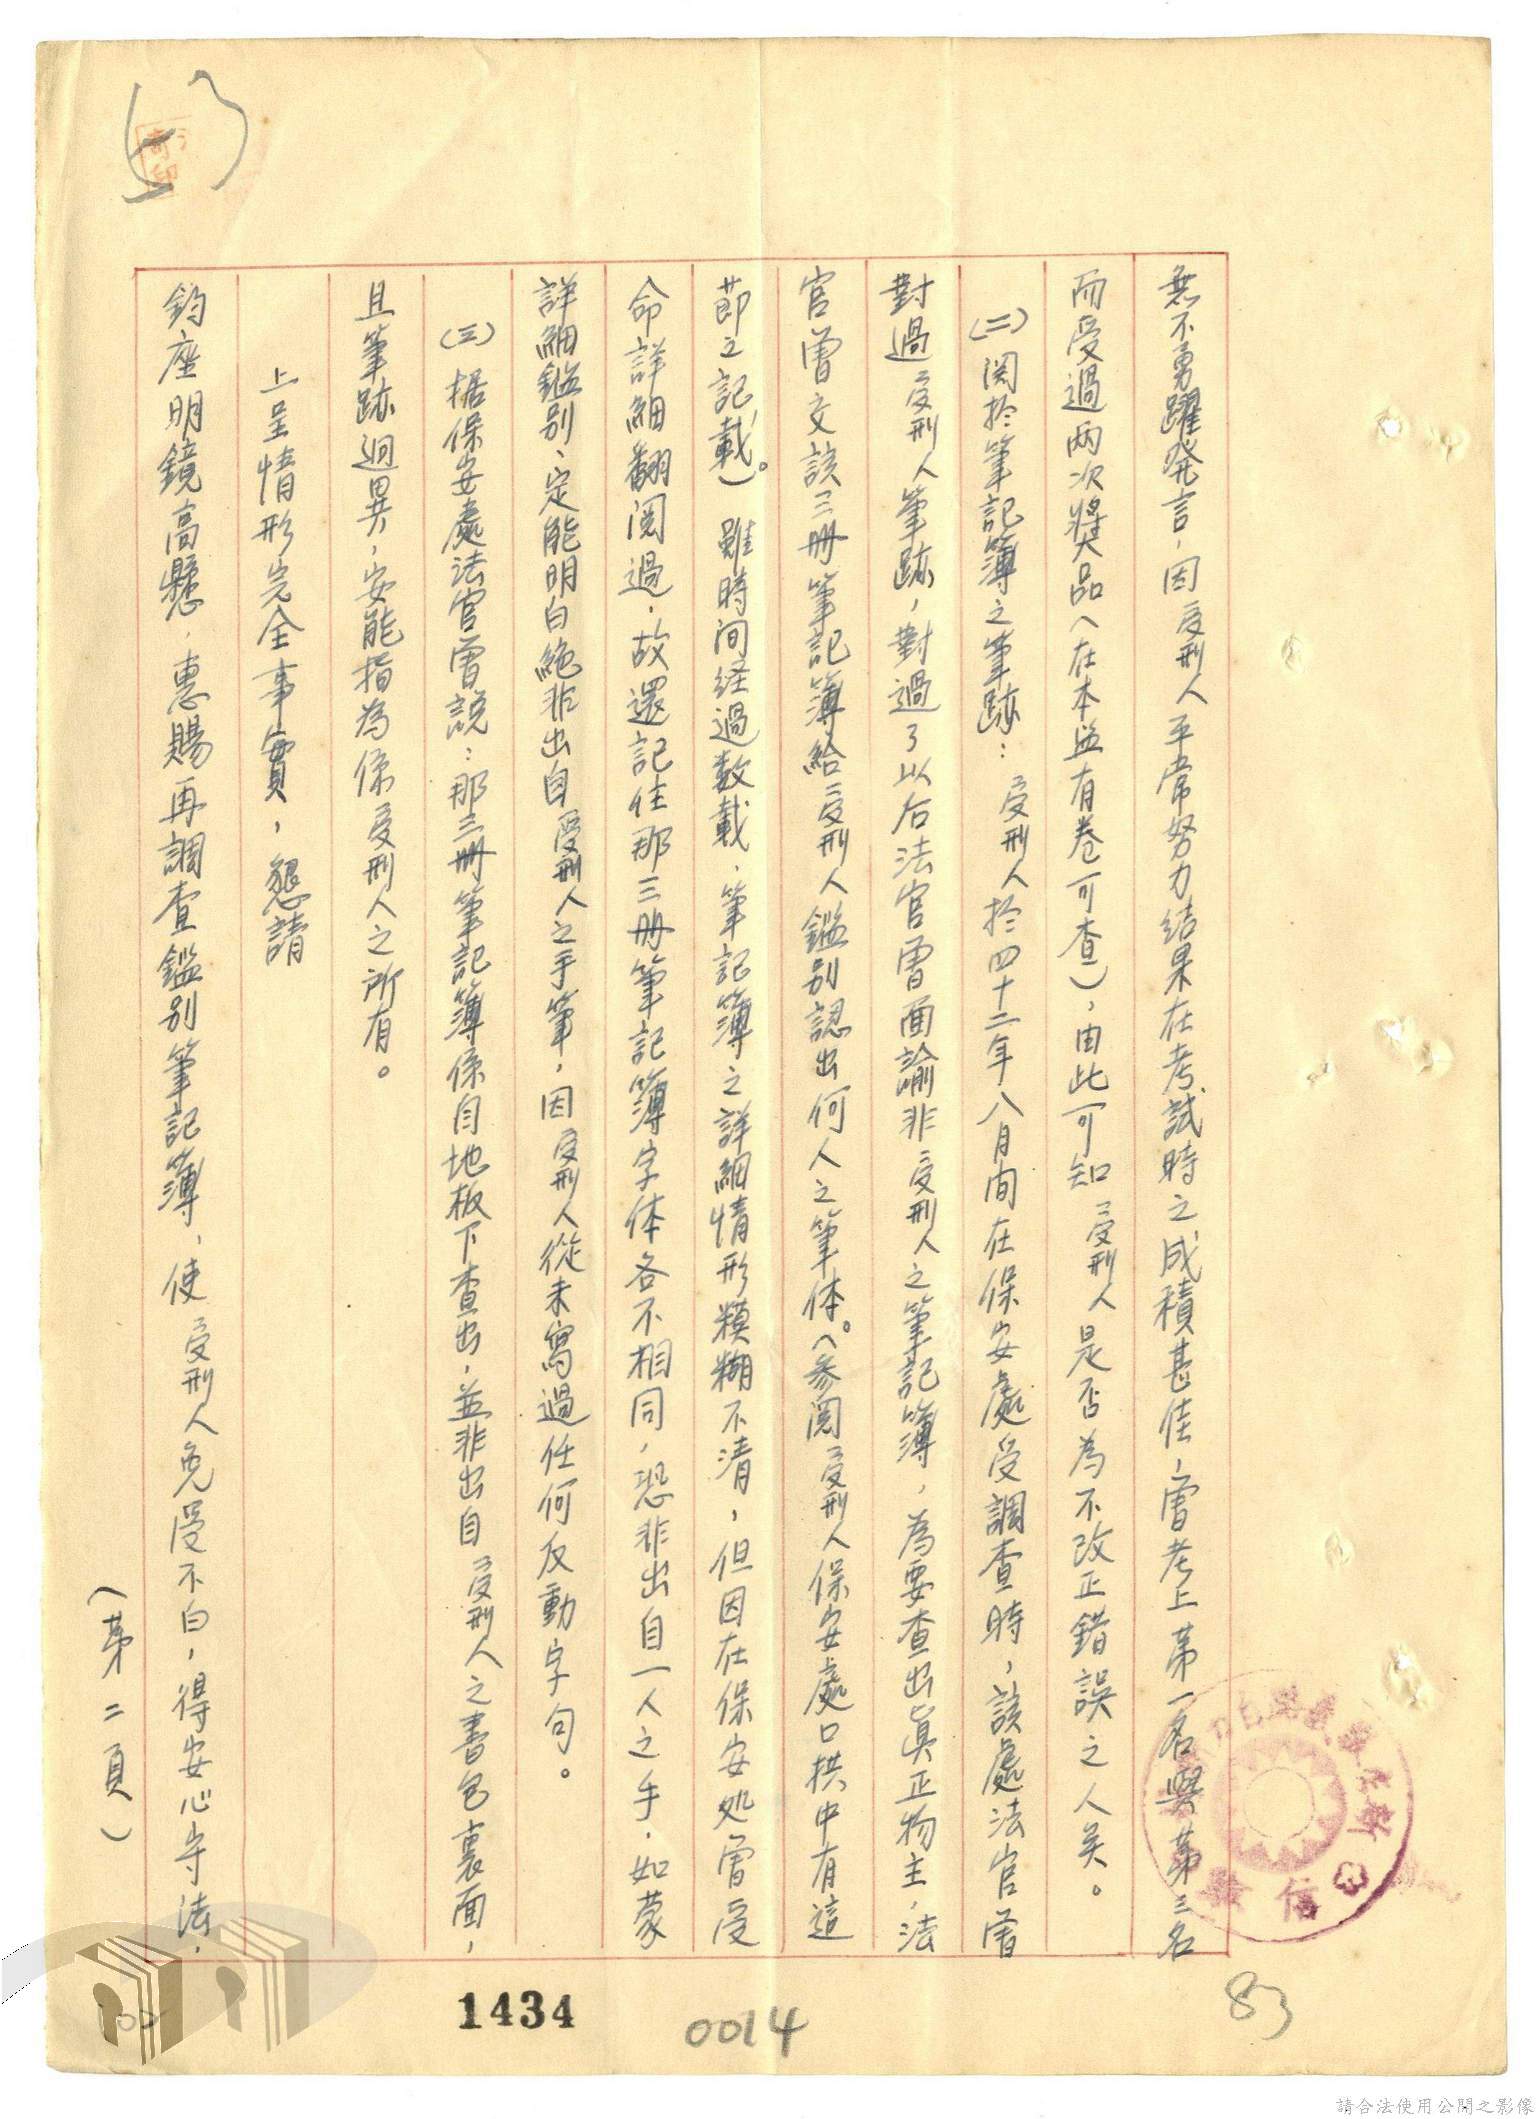 無不勇躍発言，因受刑人平常努力結果在考試時之成積甚佳，曾考上第一名與第三名
而受過両次奨品（在本监有卷可查），由此可知受刑人是否為不改正錯誤之人矣。
（二）関於筆記簿之筆跡：受刑人於四十二年八月间在保安處受調查時，該處法官曾
對過受刑人筆跡，對過了以后法官曾面諭非受刑人之筆記簿，為要查出真正物主，法
官曾交該三册筆記簿給受刑人鑑别認出何人之筆体。（参閲受刑人保安處口拱中有這
節之記載。）雖時间経過数載，筆記簿之詳細情形糢糊不清，但因在保安処曾受
命詳細翻閲過，故還記住那三册筆記簿字体各不相同，恐非出自一人之手，如蒙
詳細鑑别、定能明白絶非出自受刑人之手筆，因受刑人從未寫過任何反動字句。
（三）据保安處法官曾説：那三册筆記簿係自地板下查出，並非出自受刑人之書包裏面，
且筆跡迥異，安能指為係受刑人之所有。
上呈情形完全事實，懇請
鈞座明鏡高懸，惠賜再調查鑑别筆記簿，使受刑人免受不白，得安心守法，
（第二頁）
83
0014
1434
請合法使用公開之影像